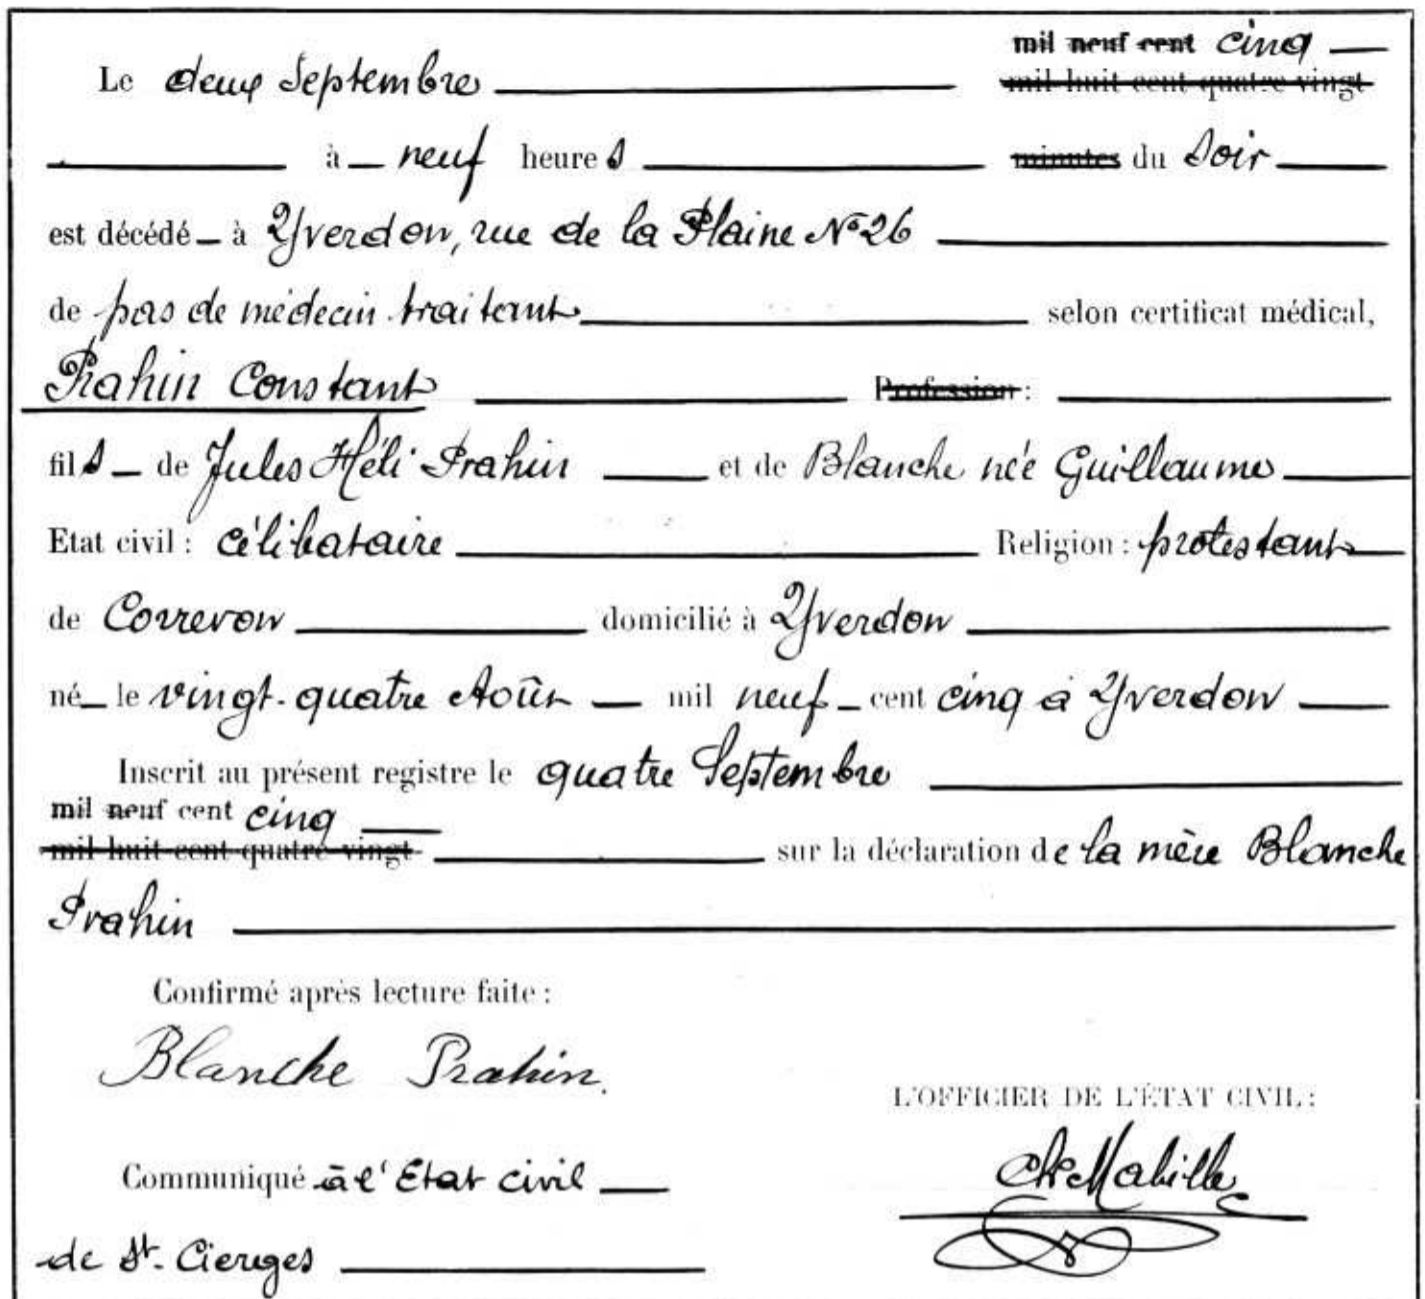 mil neuf cent cinq
Le deux Septembre mil huit cent quatre vingt
à neuf heures minutes du soir
est décédé à Yverdon, rue de la Plaine No 26
de pas de médecin traitant selon certificat médical,
Prahin Constant Profession :
fils de Jules Héli Prahin et de Blanche née Guillaume
Etat civil : célibataire Religion : protestant
de Correvon domicilié à Yverdon
né le vingt-quatre Août mil neuf cent cinq à Yverdon
Inscrit au présent registre le quatre Septembre
mil neuf cent cinq
mil huit cent quatre vingt sur la déclaration de la mère Blanche
Prahin
Confirmé après lecture faite :
Blanche Prahin.
L'OFFICIER DE L'ÉTAT CIVIL :
Communiqué à l'Etat civil
de St. Cierges